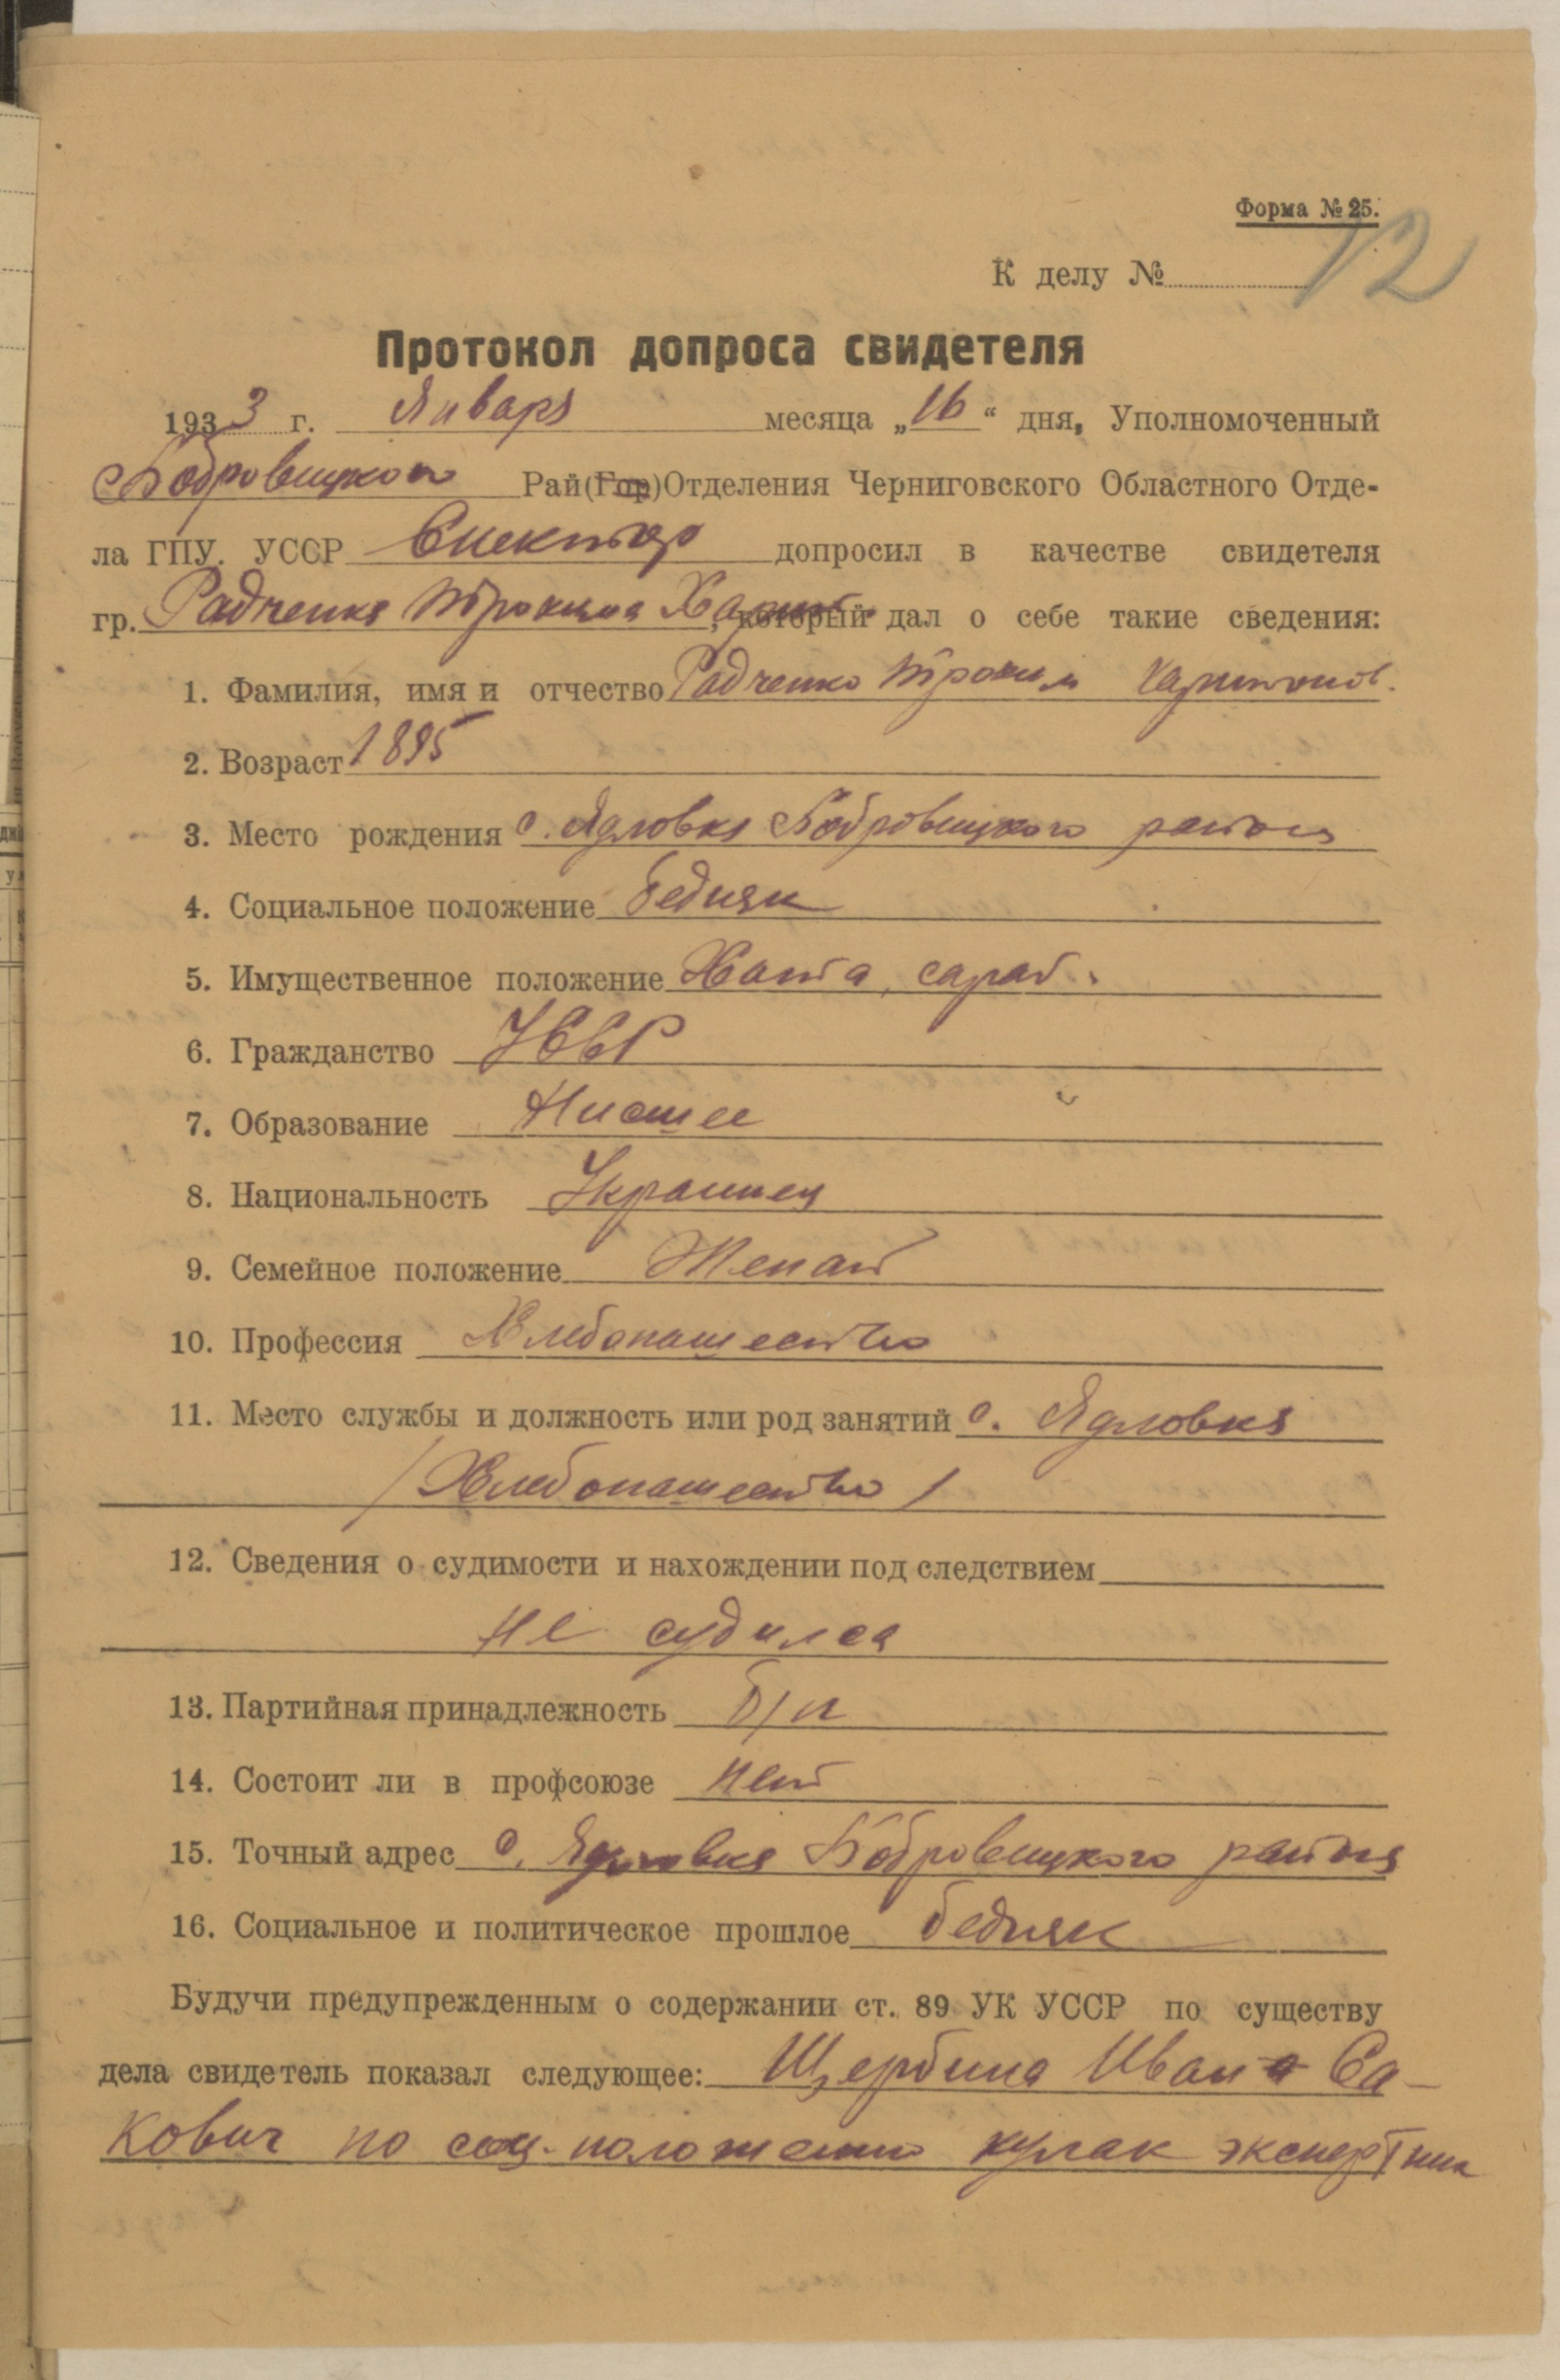 Форма № 25.
К делу № 12
Протокол допроса свидетеля
1933 г. Января месяца „16“ дня, Уполномоченный
Бобровицкого Рай(Гор)Отделения Черниговского Областного Отде-
ла ГПУ. УССР Спектор допросил в качестве свидетеля
гр. Радченка Трохима Харит., который дал о себе такие сведения:
1. Фамилия, имя и отчество Радченко Трохим Харитонов.
2. Возраст 1895
3. Место рождения с. Ядловка Бобровицкого района
4. Социальное положение бедняк
5. Имущественное положение Хата, сарай.
6. Гражданство УССР
7. Образование Нисшее
8. Национальность Украинец
9. Семейное положение Женат
10. Профессия Хлебопашество
11. Место службы и должность или род занятий с. Ядловка
/Хлебопашество/
12. Сведения о судимости и нахождении под следствием
не судился
13. Партийная принадлежность б/п
14. Состоит ли в профсоюзе нет
15. Точный адрес с. Ядловка Бобровицкого района
16. Социальное и политическое прошлое бедняк
Будучи предупрежденным о содержании ст. 89 УК УССР по существу
дела свидетель показал следующее: Щербина Иван Са-
кович по соц-положению кулак экспертник